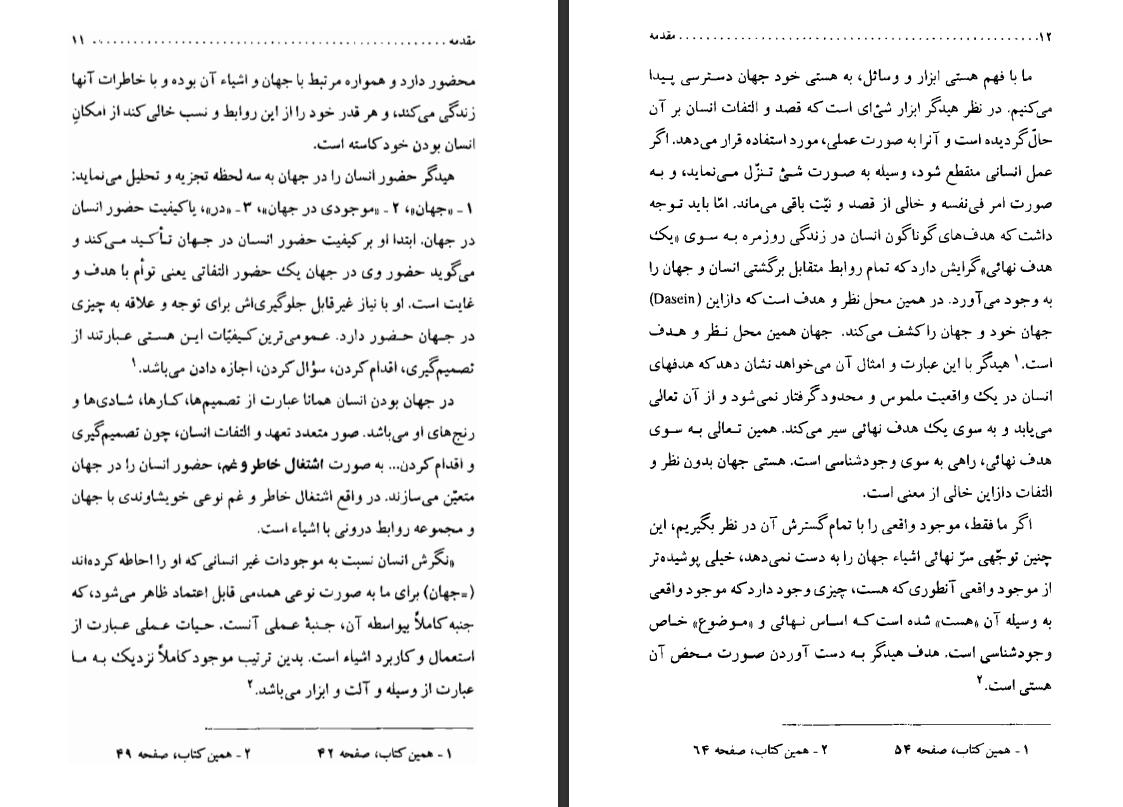 مقدمه ........................................................ ۱۱
محضور دارد و همواره مرتبط با جهان و اشیاء آن بوده و با خاطرات آنها
زندگی می‌کند، و هر قدر خود را از این روابط و نسب خالی کند از امکانِ
انسان بودن خود کاسته است.
هیدگر حضور انسان را در جهان به سه لحظه تجزیه و تحلیل می‌نماید:
۱ - «جهان»، ۲ - «موجودی در جهان»، ۳ - «در»، یا کیفیت حضور انسان
در جهان. ابتدا او بر کیفیت حضور انسان در جهان تأکید می‌کند و
می‌گوید حضور وی در جهان یک حضور التفاتی یعنی توأم با هدف و
غایت است. او با نیاز غیرقابل جلوگیری‌اش برای توجه و علاقه به چیزی
در جهان حضور دارد. عمومی‌ترین کیفیّات این هستی عبارتند از
تصمیم‌گیری، اقدام کردن، سؤال کردن، اجازه دادن می‌باشد.۱
در جهان بودن انسان همانا عبارت از تصمیم‌ها، کارها، شادی‌ها و
رنج‌های او می‌باشد. صور متعدد تعهد و التفات انسان، چون تصمیم‌گیری
و اقدام کردن... به صورت اشتغال خاطر و غم، حضور انسان را در جهان
متعیّن می‌سازند. در واقع اشتغال خاطر و غم نوعی خویشاوندی با جهان
و مجموعه روابط درونی با اشیاء است.
«نگرش انسان نسبت به موجودات غیر انسانی که او را احاطه کرده‌اند
(=جهان) برای ما به صورت نوعی همدمی قابل اعتماد ظاهر می‌شود، که
جنبه کاملاً بیواسطه آن، جنبهٔ عملی آنست. حیات عملی عبارت از
استعمال و کاربرد اشیاء است. بدین ترتیب موجود کاملاً نزدیک به ما
عبارت از وسیله و آلت و ابزار می‌باشد.۲
۱ - همین کتاب، صفحه ۴۲ ۲ - همین کتاب، صفحه ۴۹
۱۲ ........................................................ مقدمه
ما با فهم هستی ابزار و وسائل، به هستی خود جهان دسترسی پیدا
می‌کنیم. در نظر هیدگر ابزار شئ‌ای است که قصد و التفات انسان بر آن
حالّ گردیده است و آنرا به صورت عملی، مورد استفاده قرار می‌دهد. اگر
عمل انسانی منقطع شود، وسیله به صورت شئ تنزّل می‌نماید، و به
صورت امر فی‌نفسه و خالی از قصد و نیّت باقی می‌ماند. امّا باید توجه
داشت که هدف‌های گوناگون انسان در زندگی روزمره به سوی «یک
هدف نهائی» گرایش دارد که تمام روابط متقابل برگشتی انسان و جهان را
به وجود می‌آورد. در همین محل نظر و هدف است که دازاین (Dasein)
جهان خود و جهان را کشف می‌کند. جهان همین محل نظر و هدف
است.۱ هیدگر با این عبارت و امثال آن می‌خواهد نشان دهد که هدفهای
انسان در یک واقعیت ملموس و محدود گرفتار نمی‌شود و از آن تعالی
می‌یابد و به سوی یک هدف نهائی سیر می‌کند. همین تعالی به سوی
هدف نهائی، راهی به سوی وجودشناسی است. هستی جهان بدون نظر و
التفات دازاین خالی از معنی است.
اگر ما فقط، موجود واقعی را با تمام گسترش آن در نظر بگیریم، این
چنین توجّهی سرّ نهائی اشیاء جهان را به دست نمی‌دهد، خیلی پوشیده‌تر
از موجود واقعی آنطوری که هست، چیزی وجود دارد که موجود واقعی
به وسیله آن «هست» شده است که اساس نهائی و «موضوع» خاص
وجودشناسی است. هدف هیدگر به دست آوردن صورت محض آن
هستی است.۲
۱ - همین کتاب، صفحه ۵۴ ۲ - همین کتاب، صفحه ۶۴